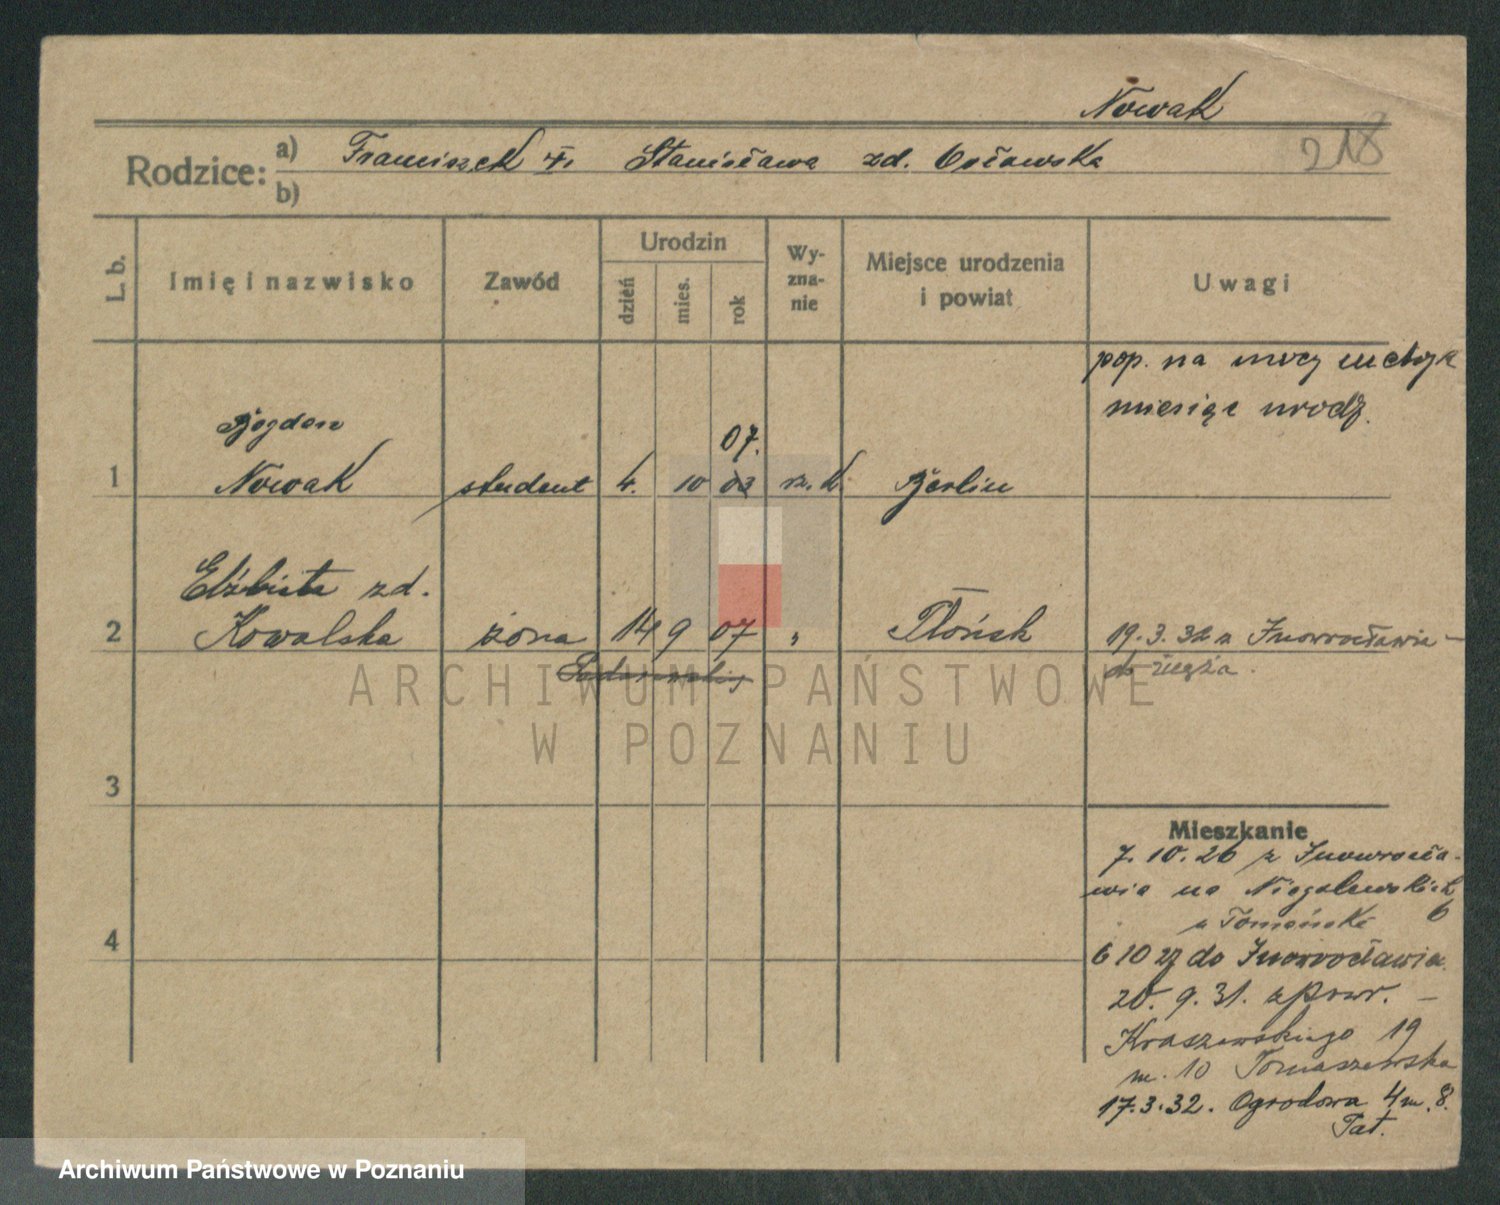 Nowak
218
Rodzice: a) Franciszek i Stanisława zd. Osławska
b)
L. b.
Imię i nazwisko
Zawód
Urodzin
dzień
mies.
rok
Wy-
zna-
nie
Miejsce urodzenia
i powiat
Uwagi
pop. na mocy metryk
miesiąc urodz.
Bogdan
07.
1 Nowak student 4. 10 03 rz. k Berlin
Elżbieta zd.
2 Kowalska żona 14 9 07 " Płońsk
19.3.32 z Inowrocławia -
do męża.
ARCHIWUM PAŃSTWOWE
W POZNANIU
3
4
Mieszkanie
7. 10. 26 z Inowrocła-
wia na Niegolewskich
6
6 10 27 do Inowrocławia
20. 9. 31. z powr. -
Kraszewskiego 19
m. 10 Tomaszewska
17.3.32. Ogrodowa 4 m. 8.
Archiwum Państwowe w Poznaniu